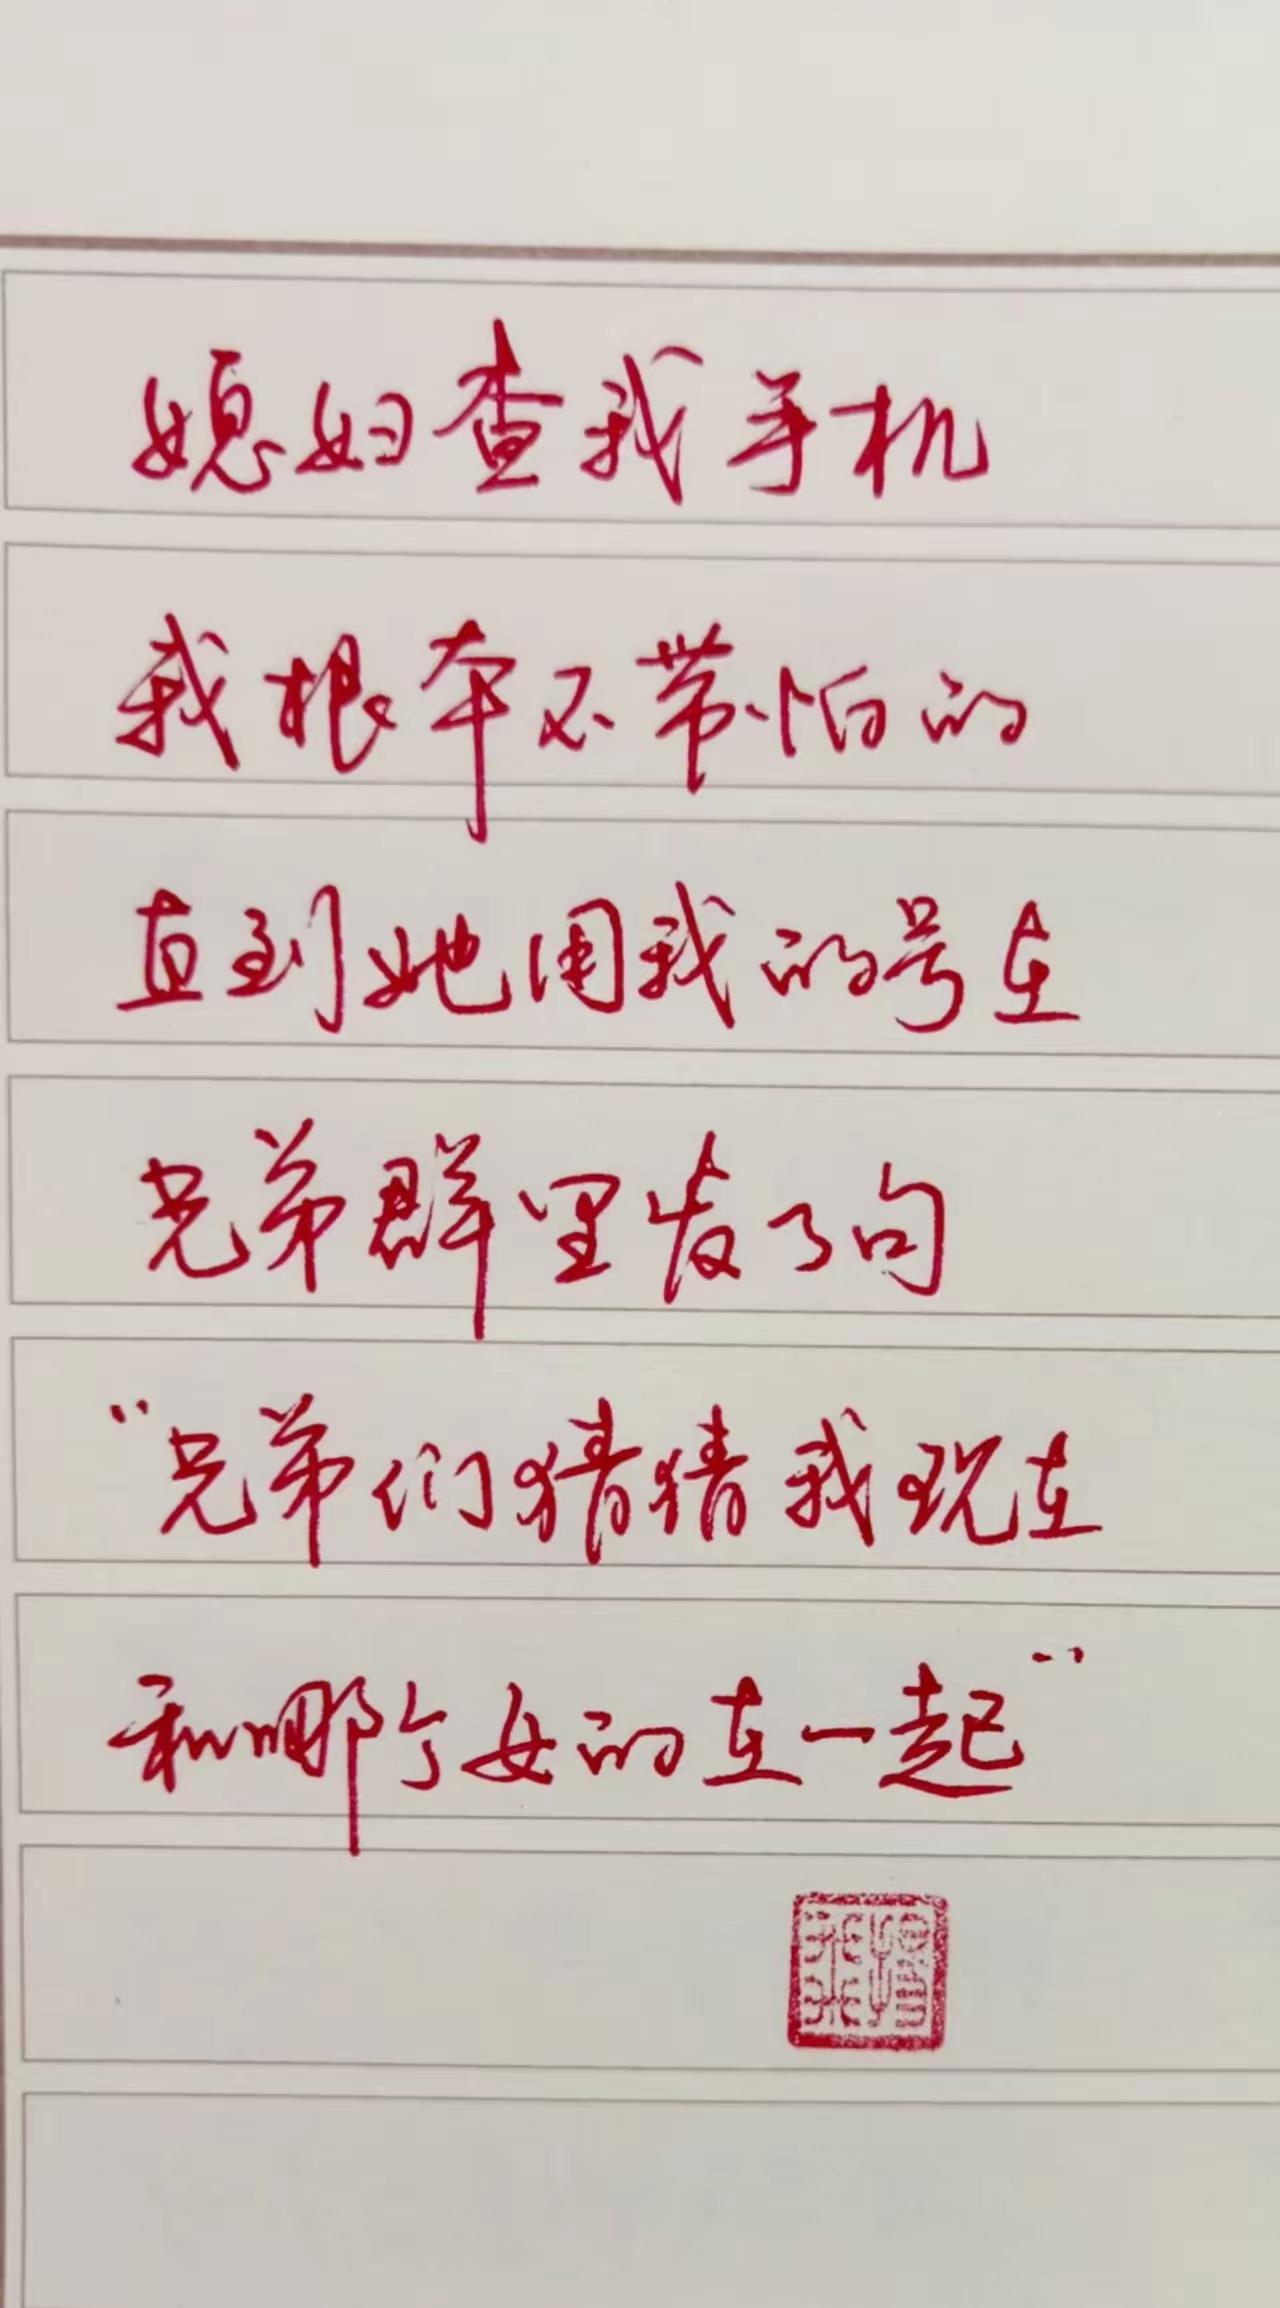 媳妇查我手机
我根本不带怕的
直到她用我的号在
兄弟群里发了句
“兄弟们猜猜我现在
和哪个女的在一起”